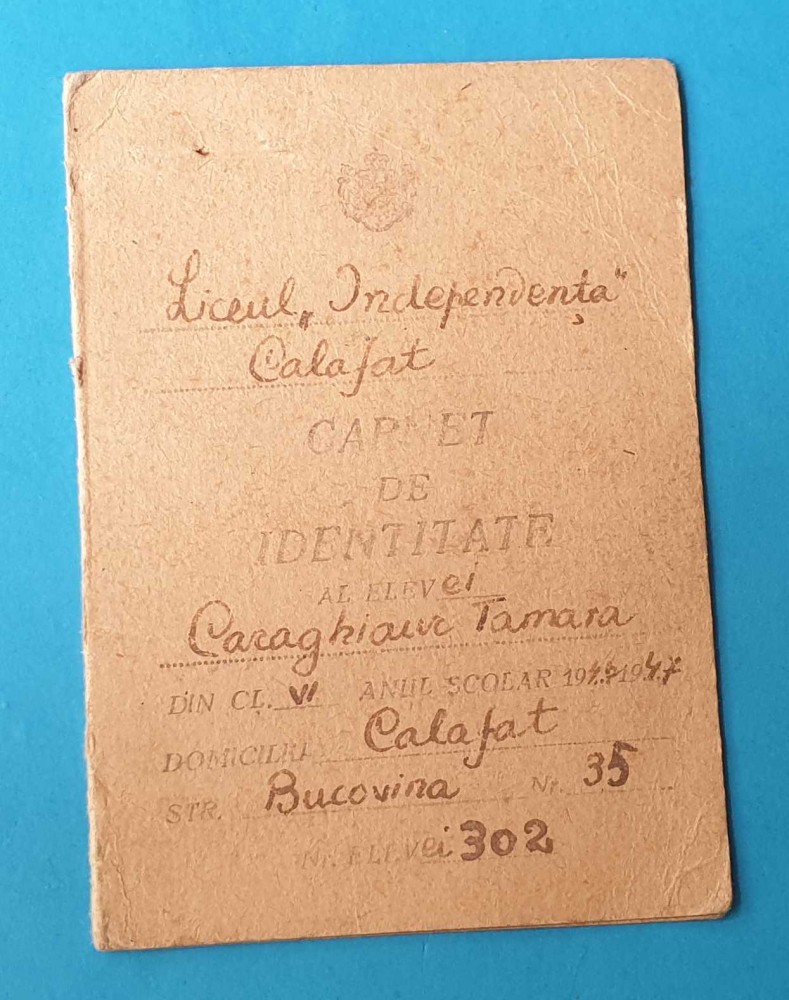 Liceul „Independența"
Calafat
CARNET
DE
IDENTITATE
AL ELEVei
Caraghiaur Tamara
DIN CL. VI ANUL ȘCOLAR 1946-1947
DOMICILIUL Calafat
STR. Bucovina Nr. 35
Nr. ELEVei 302